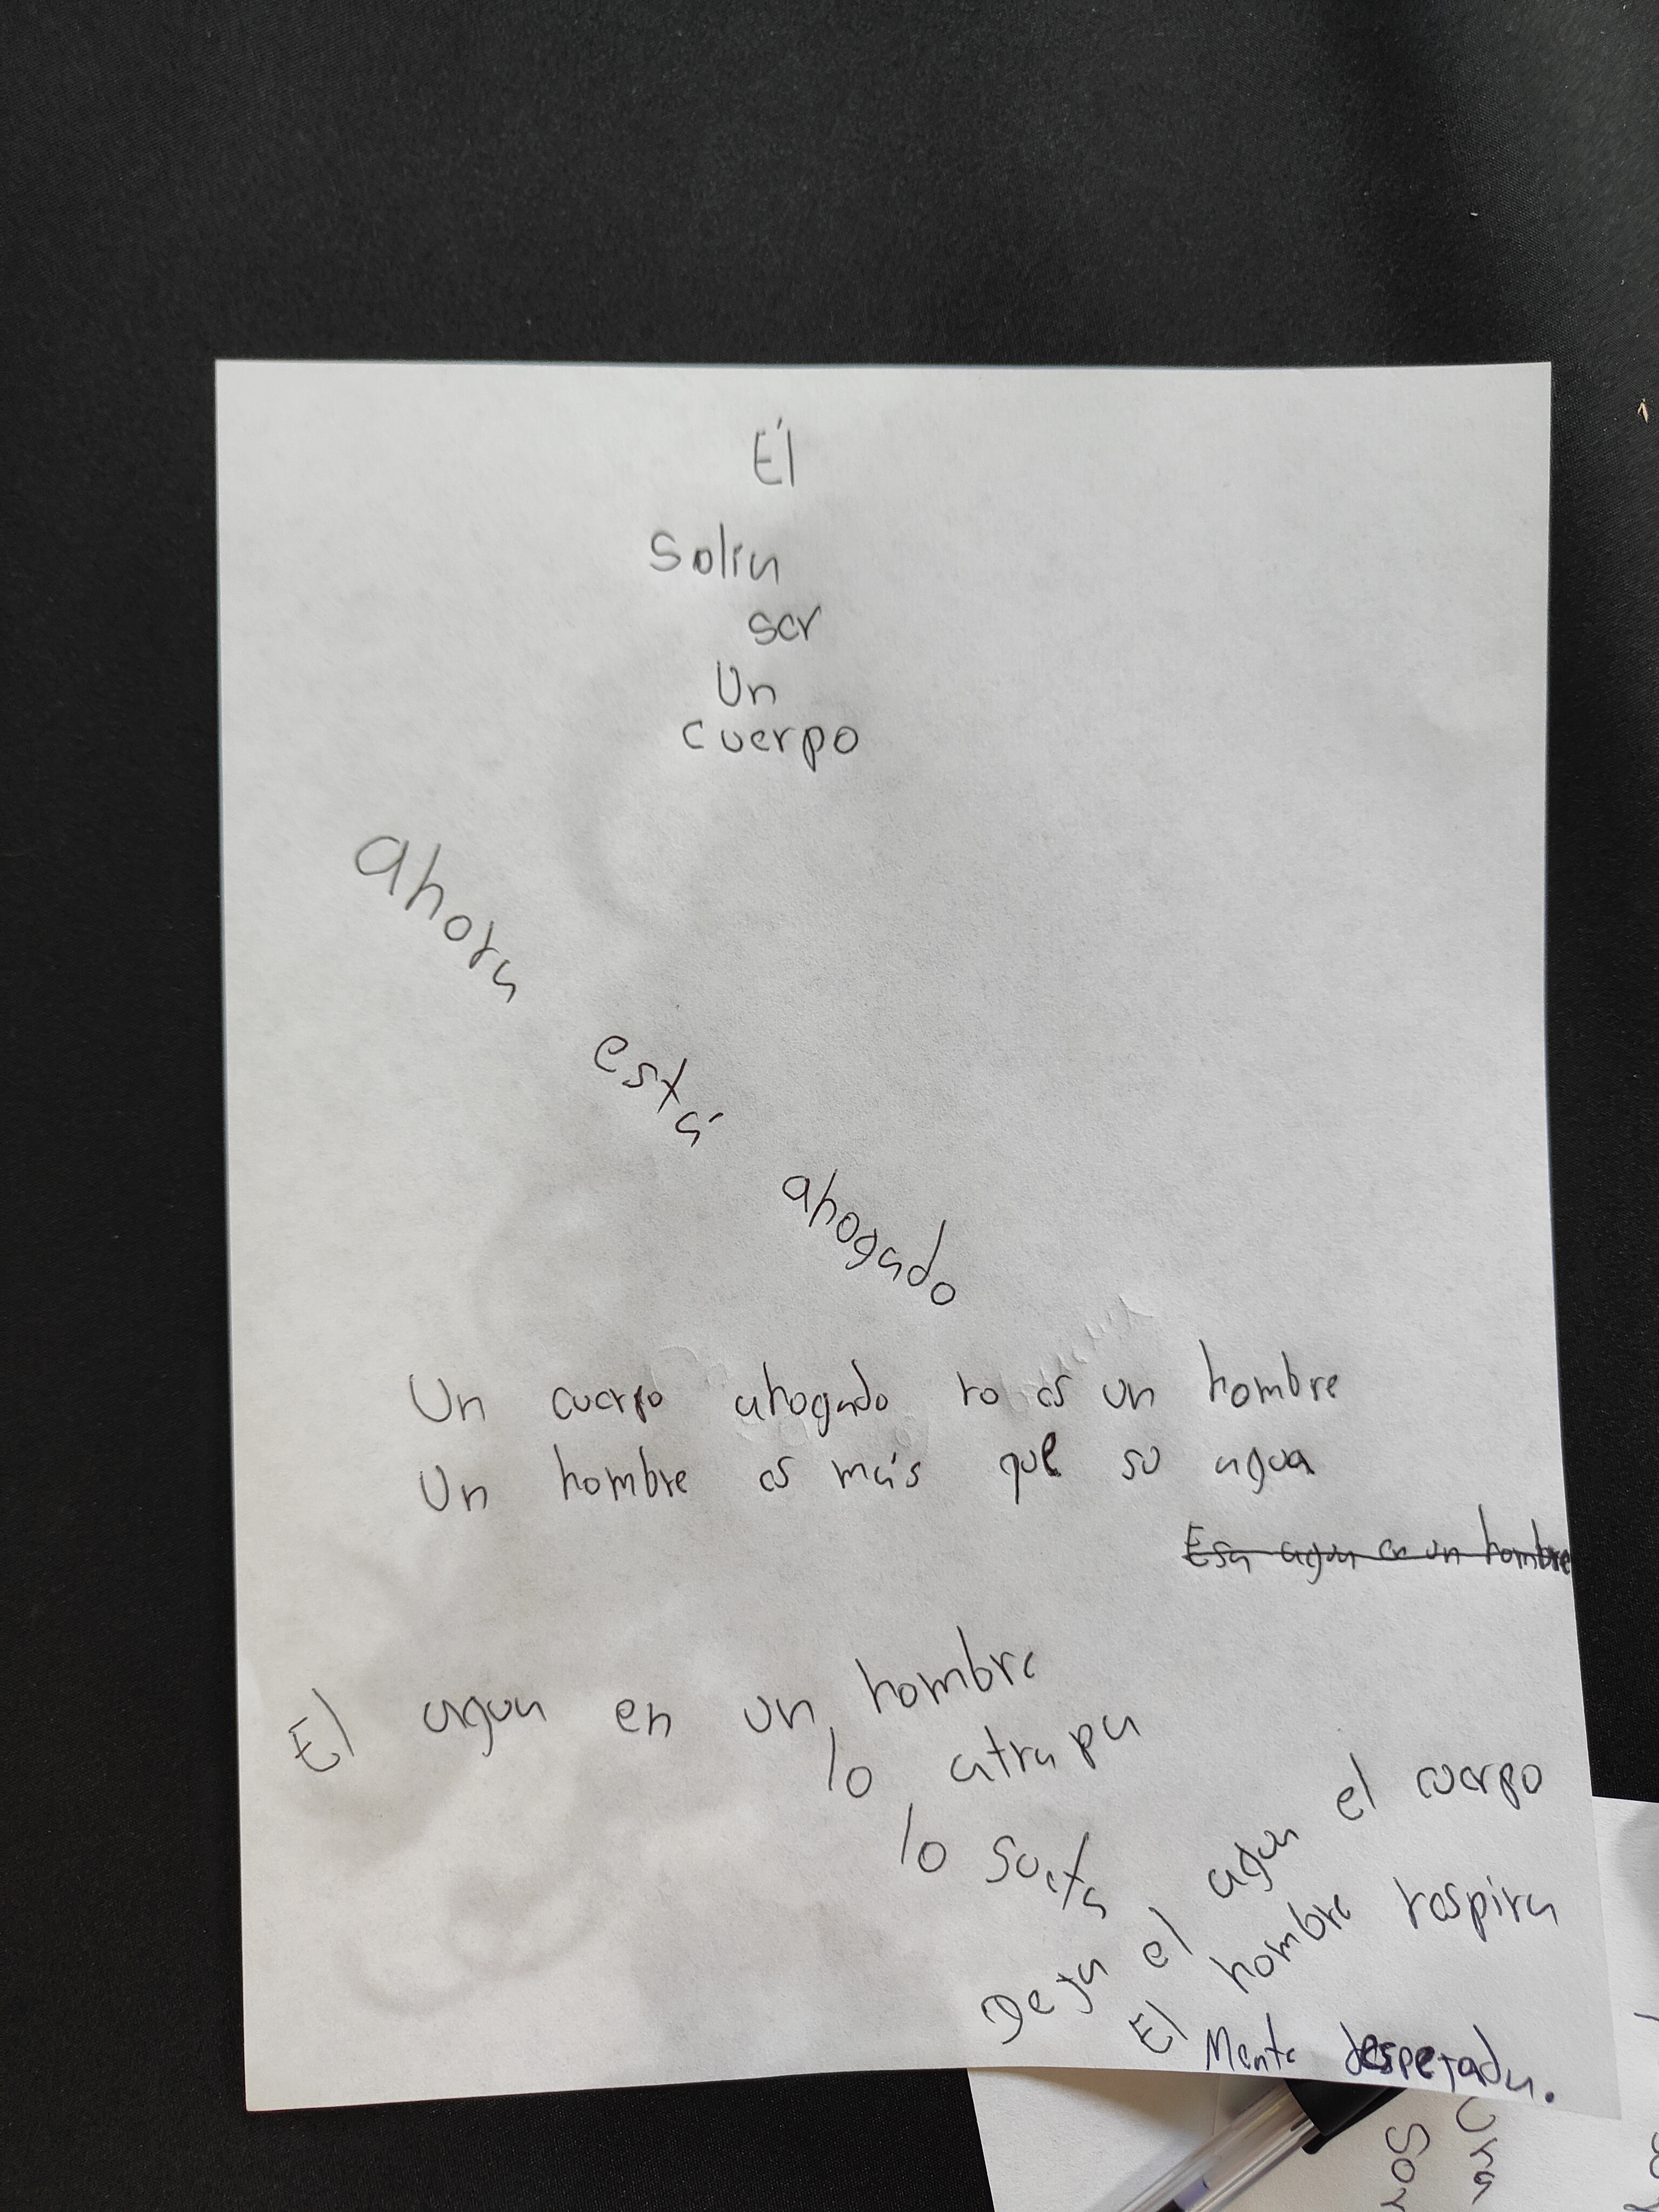 Él
Solía
ser
Un
cuerpo
ahora
está
ahogado
Un cuerpo ahogado no es un hombre
Un hombre es más que su agua
Esa agua en un hombre
El agua en un hombre
lo atrapa
lo
Deja el agua el cuerpo
El hombre respira
Mente despejada.